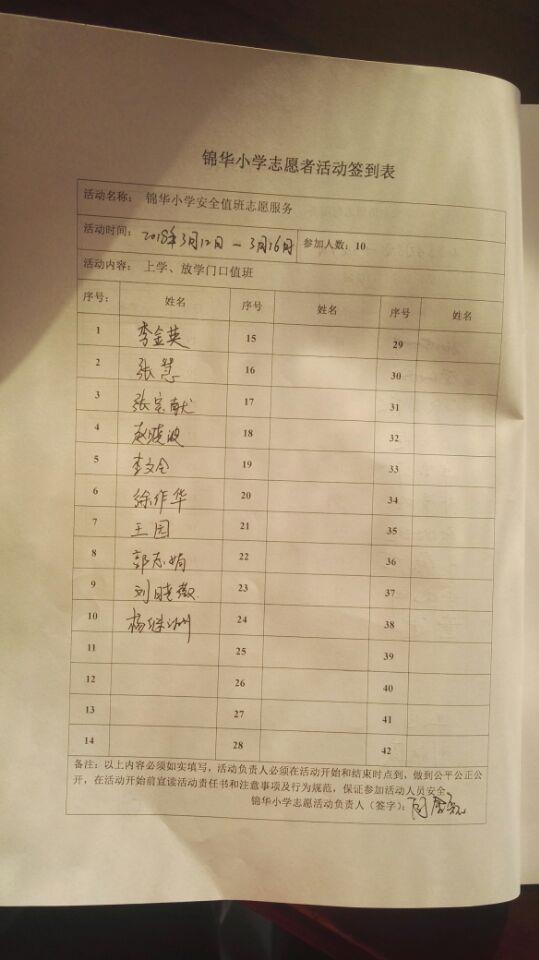 锦华小学志愿者活动签到表
活动名称： 锦华小学安全值班志愿服务
活动时间：2018年3月12日－3月16日 参加人数：10
活动内容： 上学、放学门口值班
序号： 姓名 序号 姓名 序号 姓名
1 李金英 15 29
2 张慧 16 30
3 张宗献 17 31
4 赵晓波 18 32
5 李文全 19 33
6 徐作华 20 34
7 王园 21 35
8 郭志娟 22 36
9 刘晓薇 23 37
10 杨继洲 24 38
11 25 39
12 26 40
13 27 41
14 28 42
备注：以上内容必须如实填写，活动负责人必须在活动开始和结束时点到，做到公平公正公
开，在活动开始前宣读活动责任书和注意事项及行为规范，保证参加活动人员安全。
锦华小学志愿活动负责人（签字）：